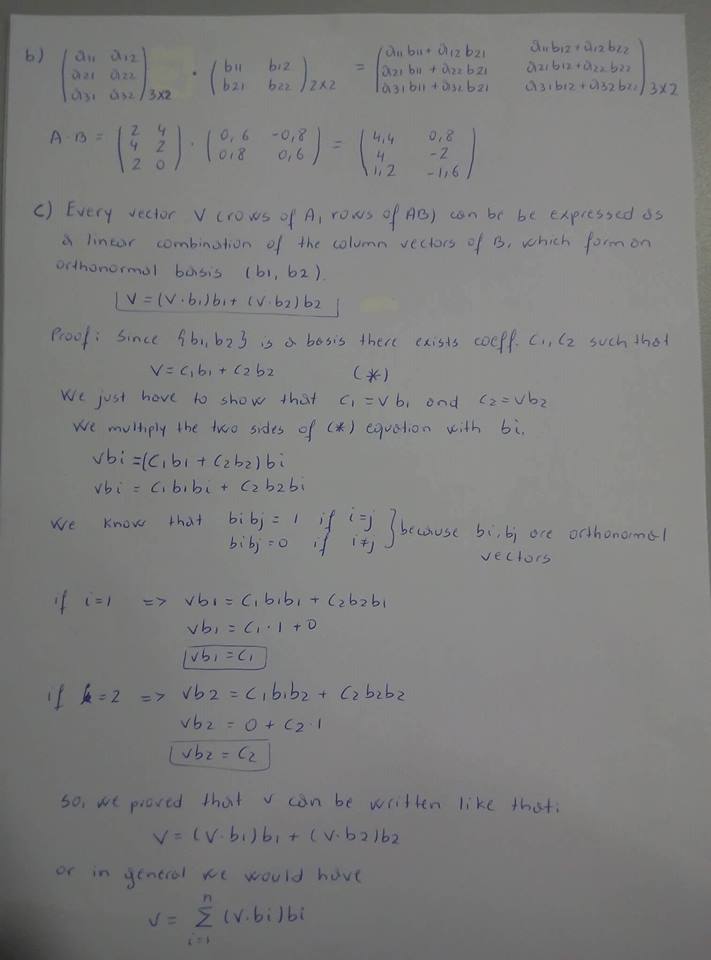 b) (a11 a12 / a21 a22 / a31 a32)3x2 · (b11 b12 / b21 b22)2x2 = (a11b11 + a12b21 a11b12 + a12b22 / a21b11 + a22b21 a21b12 + a22b22 / a31b11 + a32b21 a31b12 + a32b22)3x2
A·B = (2 4 / 4 2 / 2 0) · (0,6 -0,8 / 0,8 0,6) = (4,4 0,8 / 4 -2 / 1,2 -1,6)
c) Every vector V (rows of A, rows of AB) can be be expressed as
a linear combination of the column vectors of B, which form an
orthonormal basis (b1, b2).
V = (V·b1)b1 + (V·b2)b2
Proof: Since {b1, b2} is a basis there exists coeff. C1, C2 such that
V = C1b1 + C2b2 (*)
We just have to show that C1 = Vb1 and C2 = Vb2
We multiply the two sides of (*) equation with bi.
Vbi = (C1b1 + C2b2)bi
Vbi = C1b1bi + C2b2bi
We know that bibj = 1 if i=j
bibj = 0 if i≠j } because bi, bj are orthonormal
vectors
if i=1 => Vb1 = C1b1b1 + C2b2b1
Vb1 = C1·1 + 0
Vb1 = C1
if =2 => Vb2 = C1b1b2 + C2b2b2
Vb2 = 0 + C2·1
Vb2 = C2
So, we proved that V can be written like that:
V = (V·b1)b1 + (V·b2)b2
or in general we would have
V = n Σ i=1 (V·bi)bi